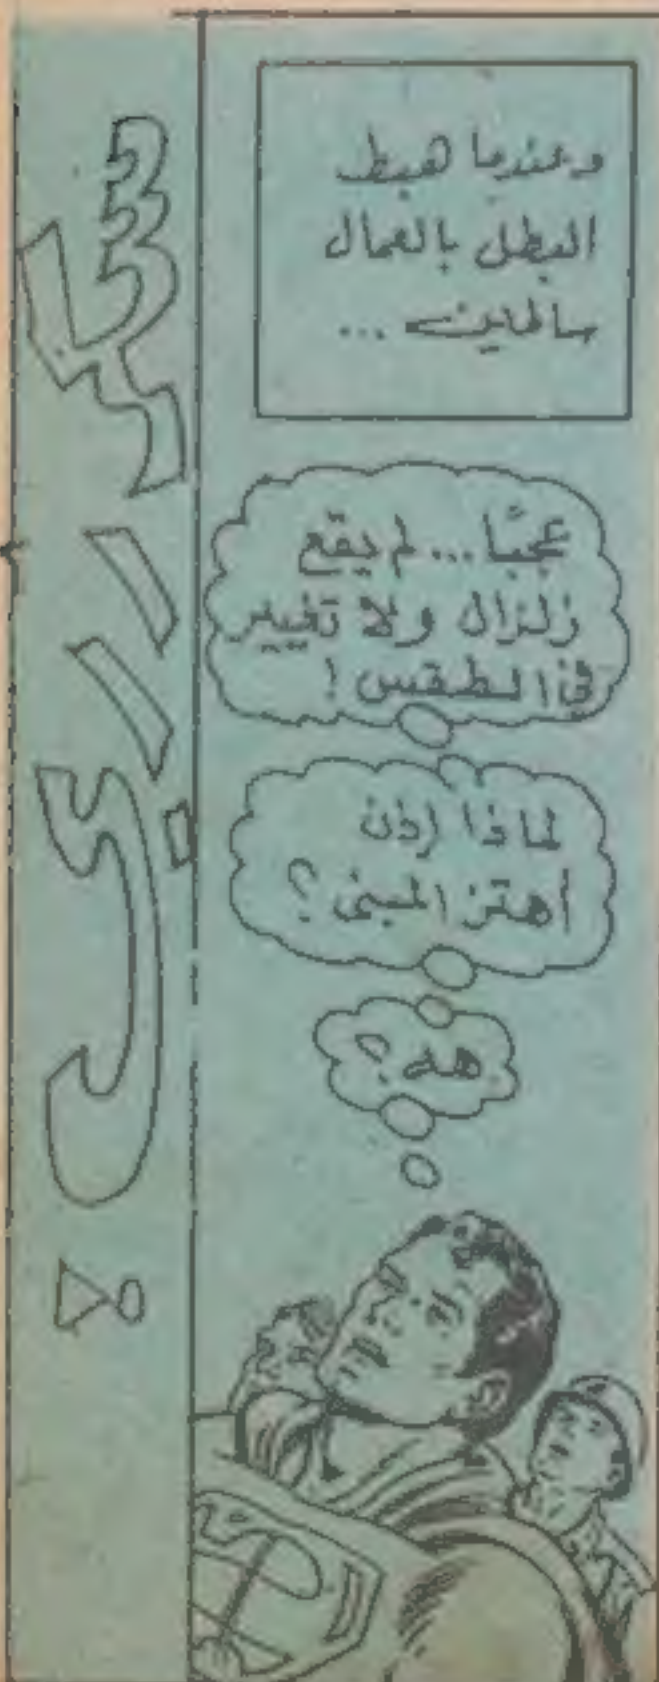 وعندما هبط
البطل بالعمال
سالمين ...
عجبًا... لم يقع
زلزال ولا تغيير
في الطقس !
لماذا إذن
أهتز المبنى ؟